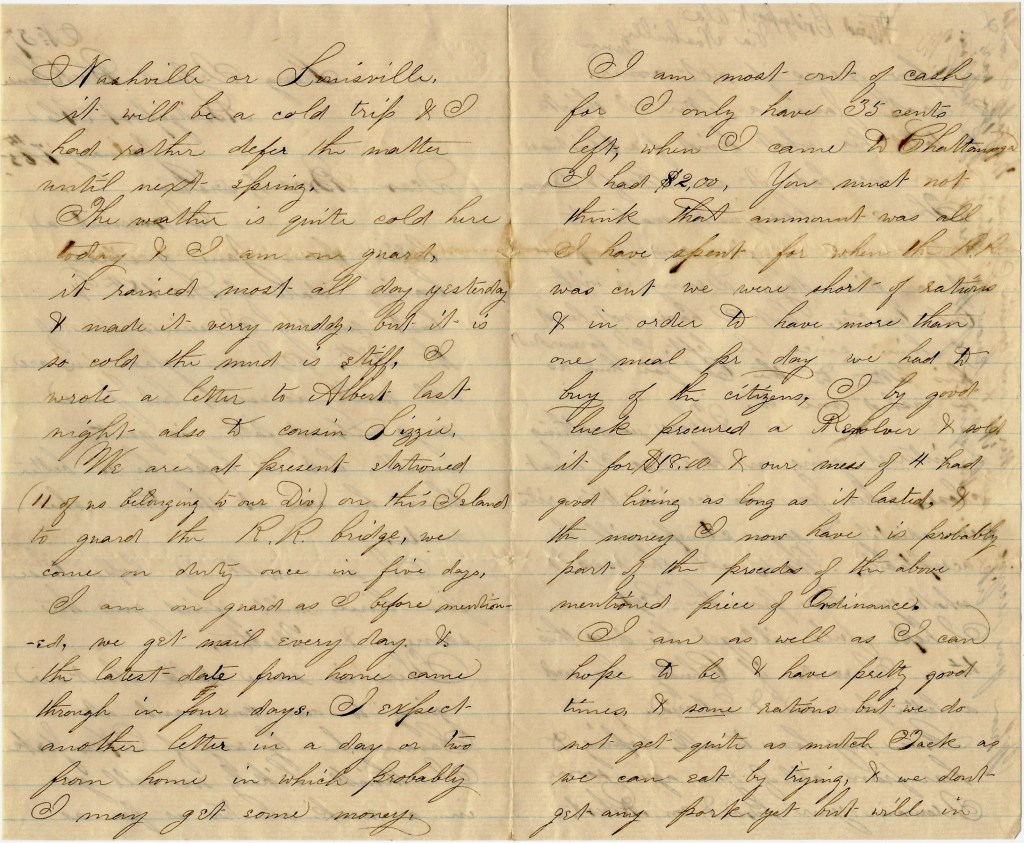 Nashville or Louisville,
it will be a cold trip & I
had rather defer the matter
until next spring.
The weather is quite cold here
today & I am on guard,
it rained most all day yesterday
& made it verry muddy, but it is
so cold the mud is stiff, I
wrote a letter to Albert last
night also to cousin Lizzie.
We are at present stationed
(11 of us belonging to our Div) on this Island
to guard the R.R bridge, we
come on duty once in five days,
I am on guard as I before mention-
-ed, we get mail every day &
the latest date from home came
through in four days. I expect
another letter in a day or two
from home in which probably
I may get some money.
I am most out of cash
for I only have 35 cents
left, when I came to Chattanooga
I had $2,00. You must not
think that ammount was all
I have spent for when the R.R.
was cut we were short of rations
& in order to have more than
one meal pr day we had to
buy of the citizens, I by good
luck procured a Revolver & sold
it for $18.00 & our mess of 4 had
good living as long as it lasted, &
the money I now have is probably
part of the procedes of the above
mentioned piece of Ordinance.
I am as well as I can
hope to be & have pretty good
times, & some rations but we do
not get quite as mutch Tack as
we can eat by trying, & we dont
get any pork yet but will in